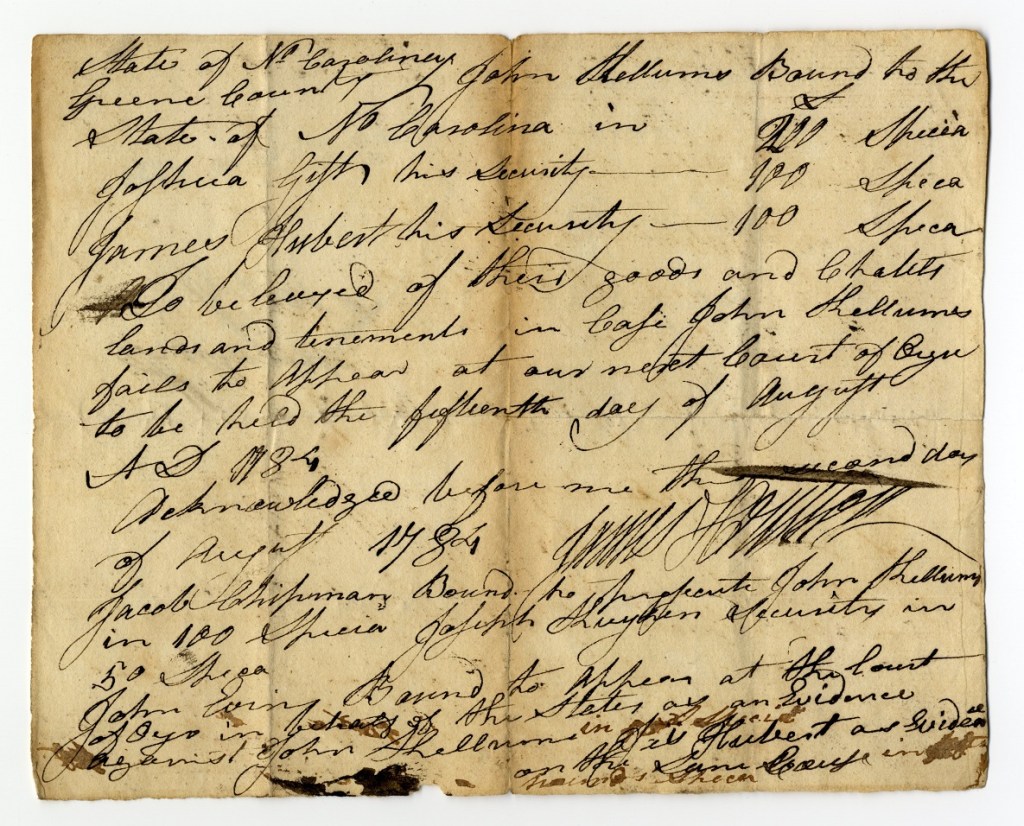 State of No Caroliney
Greene County John Kellums Bound to the
State of No Carolina in £ 200 Specia
Joshua Gist his security 100 Speca
James Hubert his Security 100 Speca
To be leveyed of their goods and Chaletts
lands and tenements in Case John Kellumes
fails to Appear at our next Court of Oyu
to be held the fifteenth day of August
A D 1784
Acknowledged before me the second day
of August 1784 James Houston
Jacob Chipman Bound to prosecute John Kellums
in 100 Specia Joseph Security in
50 Speca
John Ewing Bound to Appear at the Court
of Oyo in behalf of the States as an Evidence
against John Kellums in Specie
Hubert as Evidence
on the Same Cause in
pounds Specia